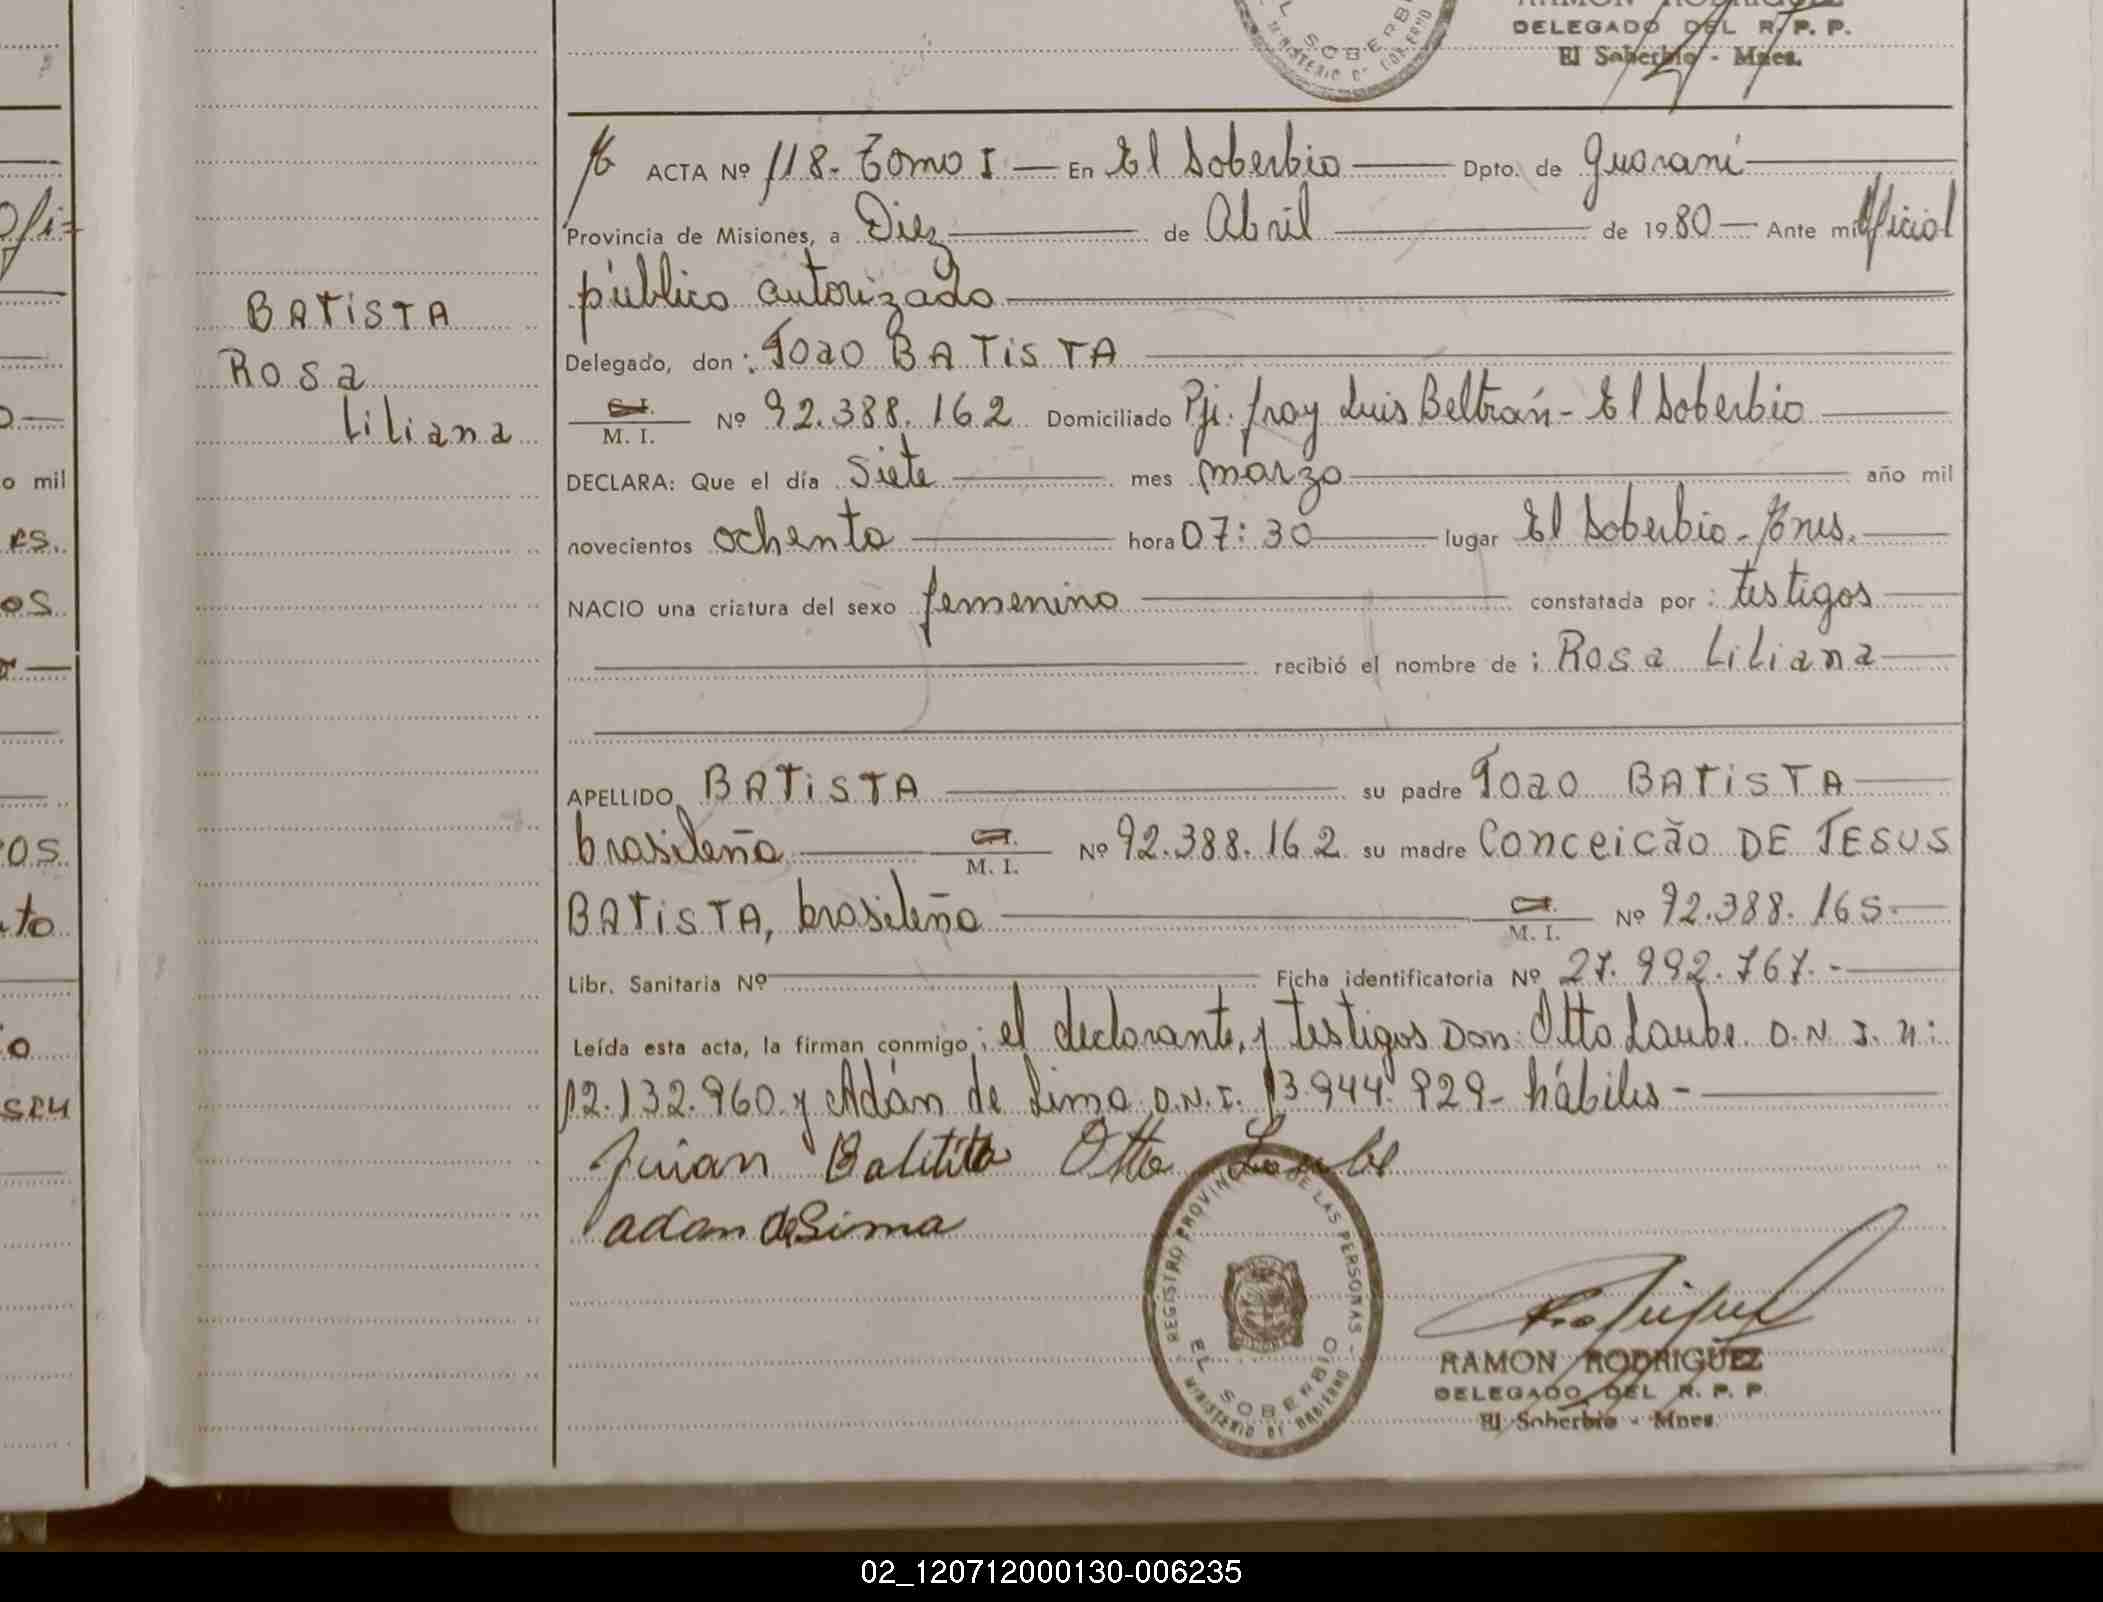 DELEGADO DEL R. P. P.
El Soberbio - Mnes.
EL SOBERBIO
MINISTERIO DE GOBIERNO
BATISTA
Rosa
Liliana
ACTA Nº 118. Tomo I — En El Soberbio — Dpto. de Guaraní
Provincia de Misiones, a Diez — de Abril — de 1980 — Ante mi Oficial
público autorizado
Delegado, don : Joao BATISTA
C. I. / M. I. Nº 92.388.162 Domiciliado Pje. fray Luis Beltrán - El Soberbio
DECLARA: Que el día Siete — mes marzo — año mil
novecientos ochenta — hora 07:30 — lugar El Soberbio - Mnes.
NACIO una criatura del sexo femenino — constatada por : testigos
recibió el nombre de : Rosa Liliana
APELLIDO BATISTA — su padre Joao BATISTA
brasileña — C.I. / M. I. Nº 92.388.162 su madre Conceicão DE JESUS
BATISTA, brasileña — C.I. / M. I. Nº 92.388.165.
Libr. Sanitaria Nº — Ficha identificatoria Nº 27.992.767.-
Leída esta acta, la firman conmigo : el declarante, y testigos Don: Otto Laube D.N.I. n:
12.132.960 y Adán de Lima D.N.I. 13.944.929- hábiles -
Juan Batitita Otto Laube
adan de Lima
REGISTRO PROVINCIAL DE LAS PERSONAS
EL SOBERBIO
MINISTERIO DE GOBIERNO
RAMON RODRIGUEZ
DELEGADO DEL R. P. P.
El Soberbio - Mnes.
02_120712000130-006235